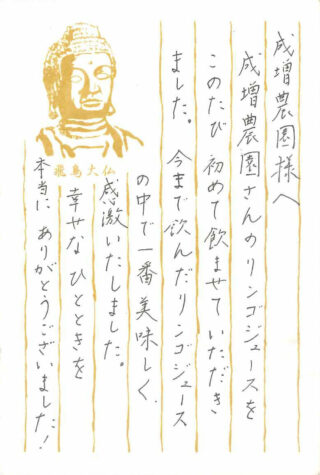 成増農園様へ
成増農園さんのリンゴジュースを
このたび初めて飲ませていただき
ました。今まで飲んだリンゴジュース
の中で一番美味しく、
感激いたしました。
幸せなひとときを
本当にありがとうございました!
飛鳥大仏